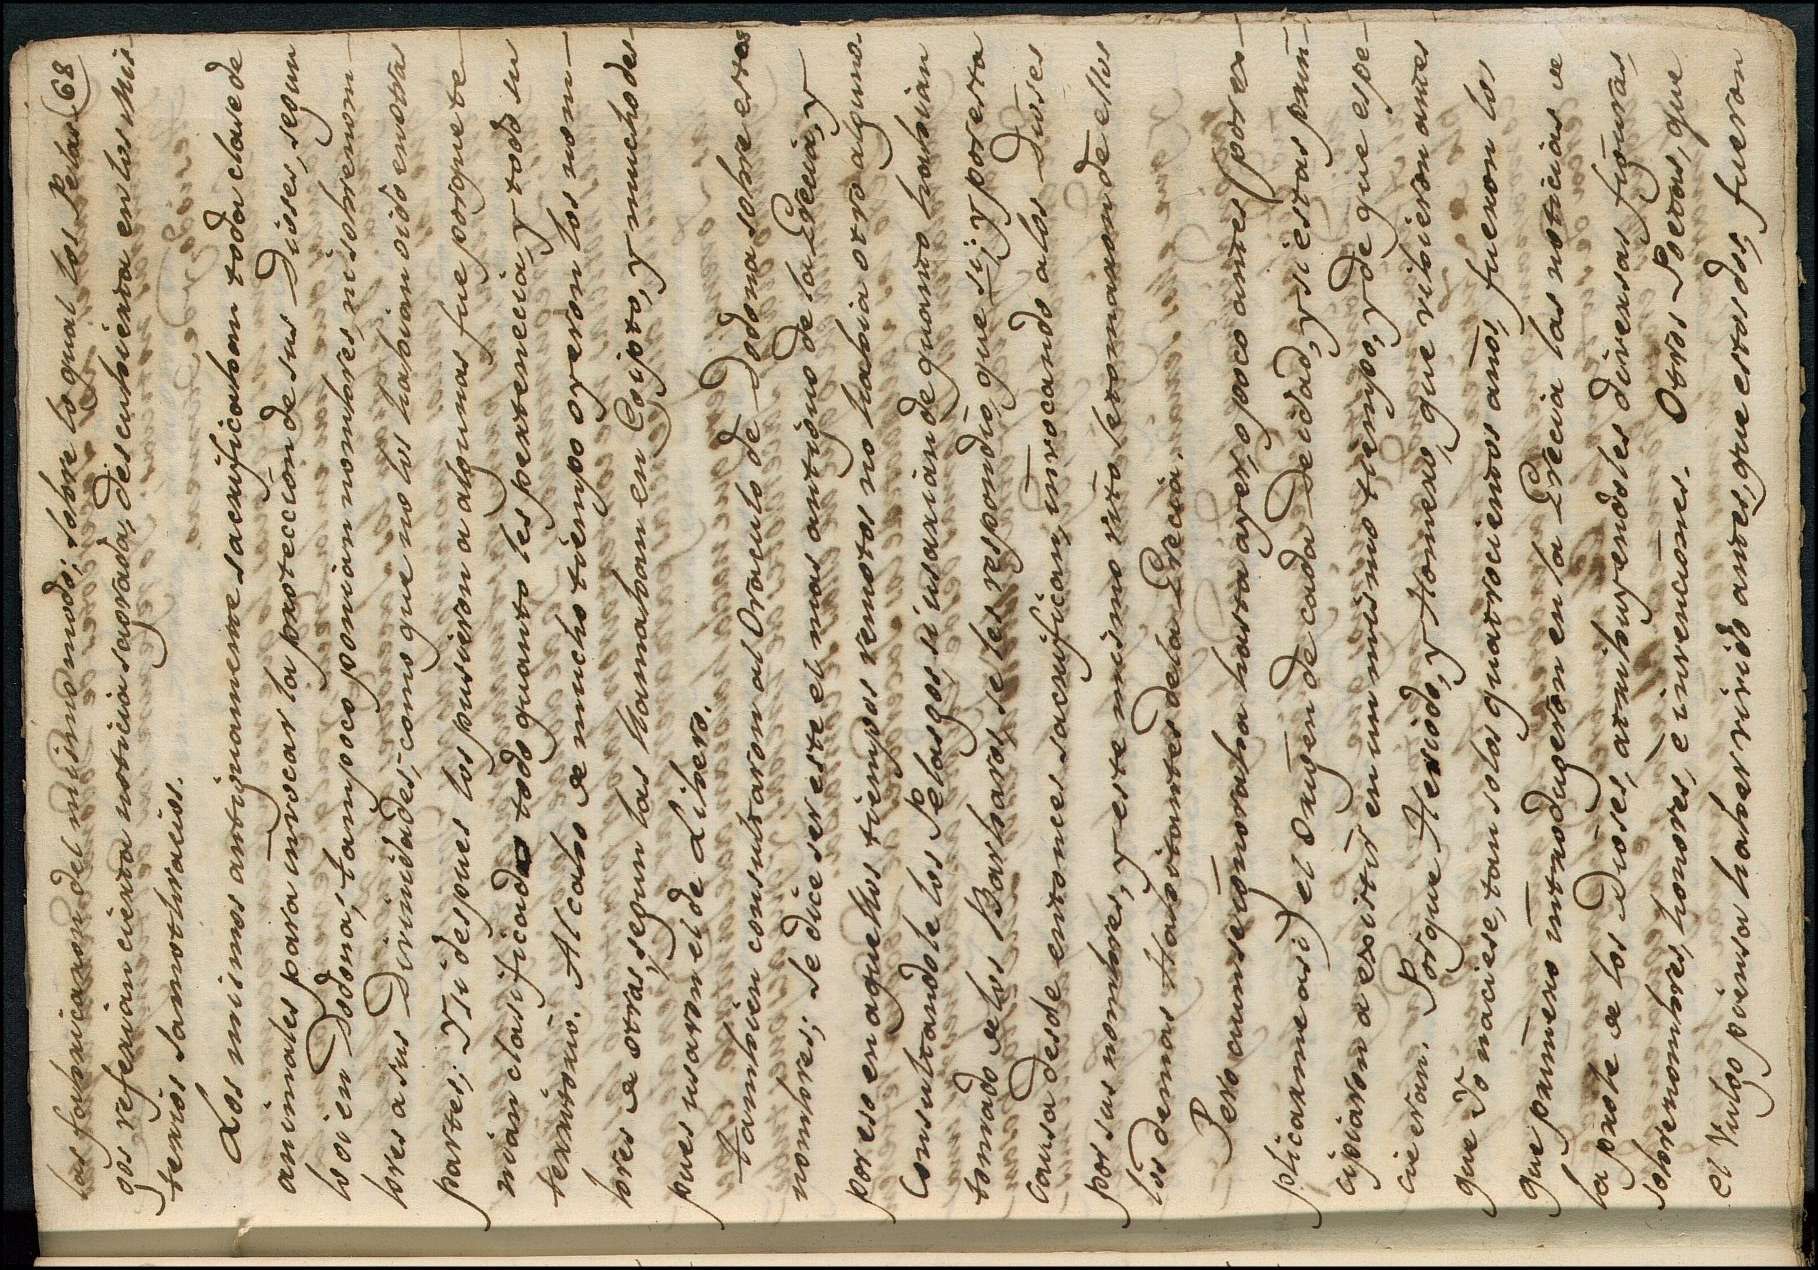 los fabricaron del mismo modo; sobre lo qual los Pelas- (68
gos referian cierta noticia sagrada, descubierta en los Mis-
terios Samothracios.
Los mismos antiguamente sacrificaban toda clase de
animales para invocar la proteccion de sus Dioses, segun
lo oi en Dodona; tampoco ponian nombres, ni sobrenom-
bres a sus Divinidades; como que no los habian oido en otras
partes; y si despues los pusieron a algunas fue porque te-
nian clasificado todo quanto les pertenecia, y todo su
territorio. Al cabo de mucho tiempo oyeron los nom-
bres de otras, segun las llamaban en Egipto, y mucho des-
pues usaron el de Libero.
tambien consultaron al Oraculo de Dodona sobre estos
nombres; se dice ser este el mas antiguo de la Grecia, y
por eso en aquellos tiempos remotos no habia otro alguno.
Consultandole los Pelasgos si usarian de quanto habian
tomado de los Barbaros, se les respondio, que si, y por esta
causa desde entonces sacrifican, invocando a los Dioses
por sus nombres, y este mismo rito le tomaron de ellos
los demas Habitantes de la Grecia.
Pero aun se ignoraba hasta ayer, o poco antes (por ex-
plicarme asi) el origen de cada Deidad, y si estas prin-
cipiaron a existir en un mismo tiempo, y de que espe-
cie eran. Porque Hesiodo, y Homero, que vivieron antes
que Yo naciese, tan solos quatrocientos años, fueron los
que primero introdugeron en la Grecia las noticias de
la prole de los Dioses, atribuyendoles diversas figuras,
sobrenombres, honores, e invenciones. Otros Poetas, que
el Vulgo piensa haber vivido antes, que estos dos, fueron